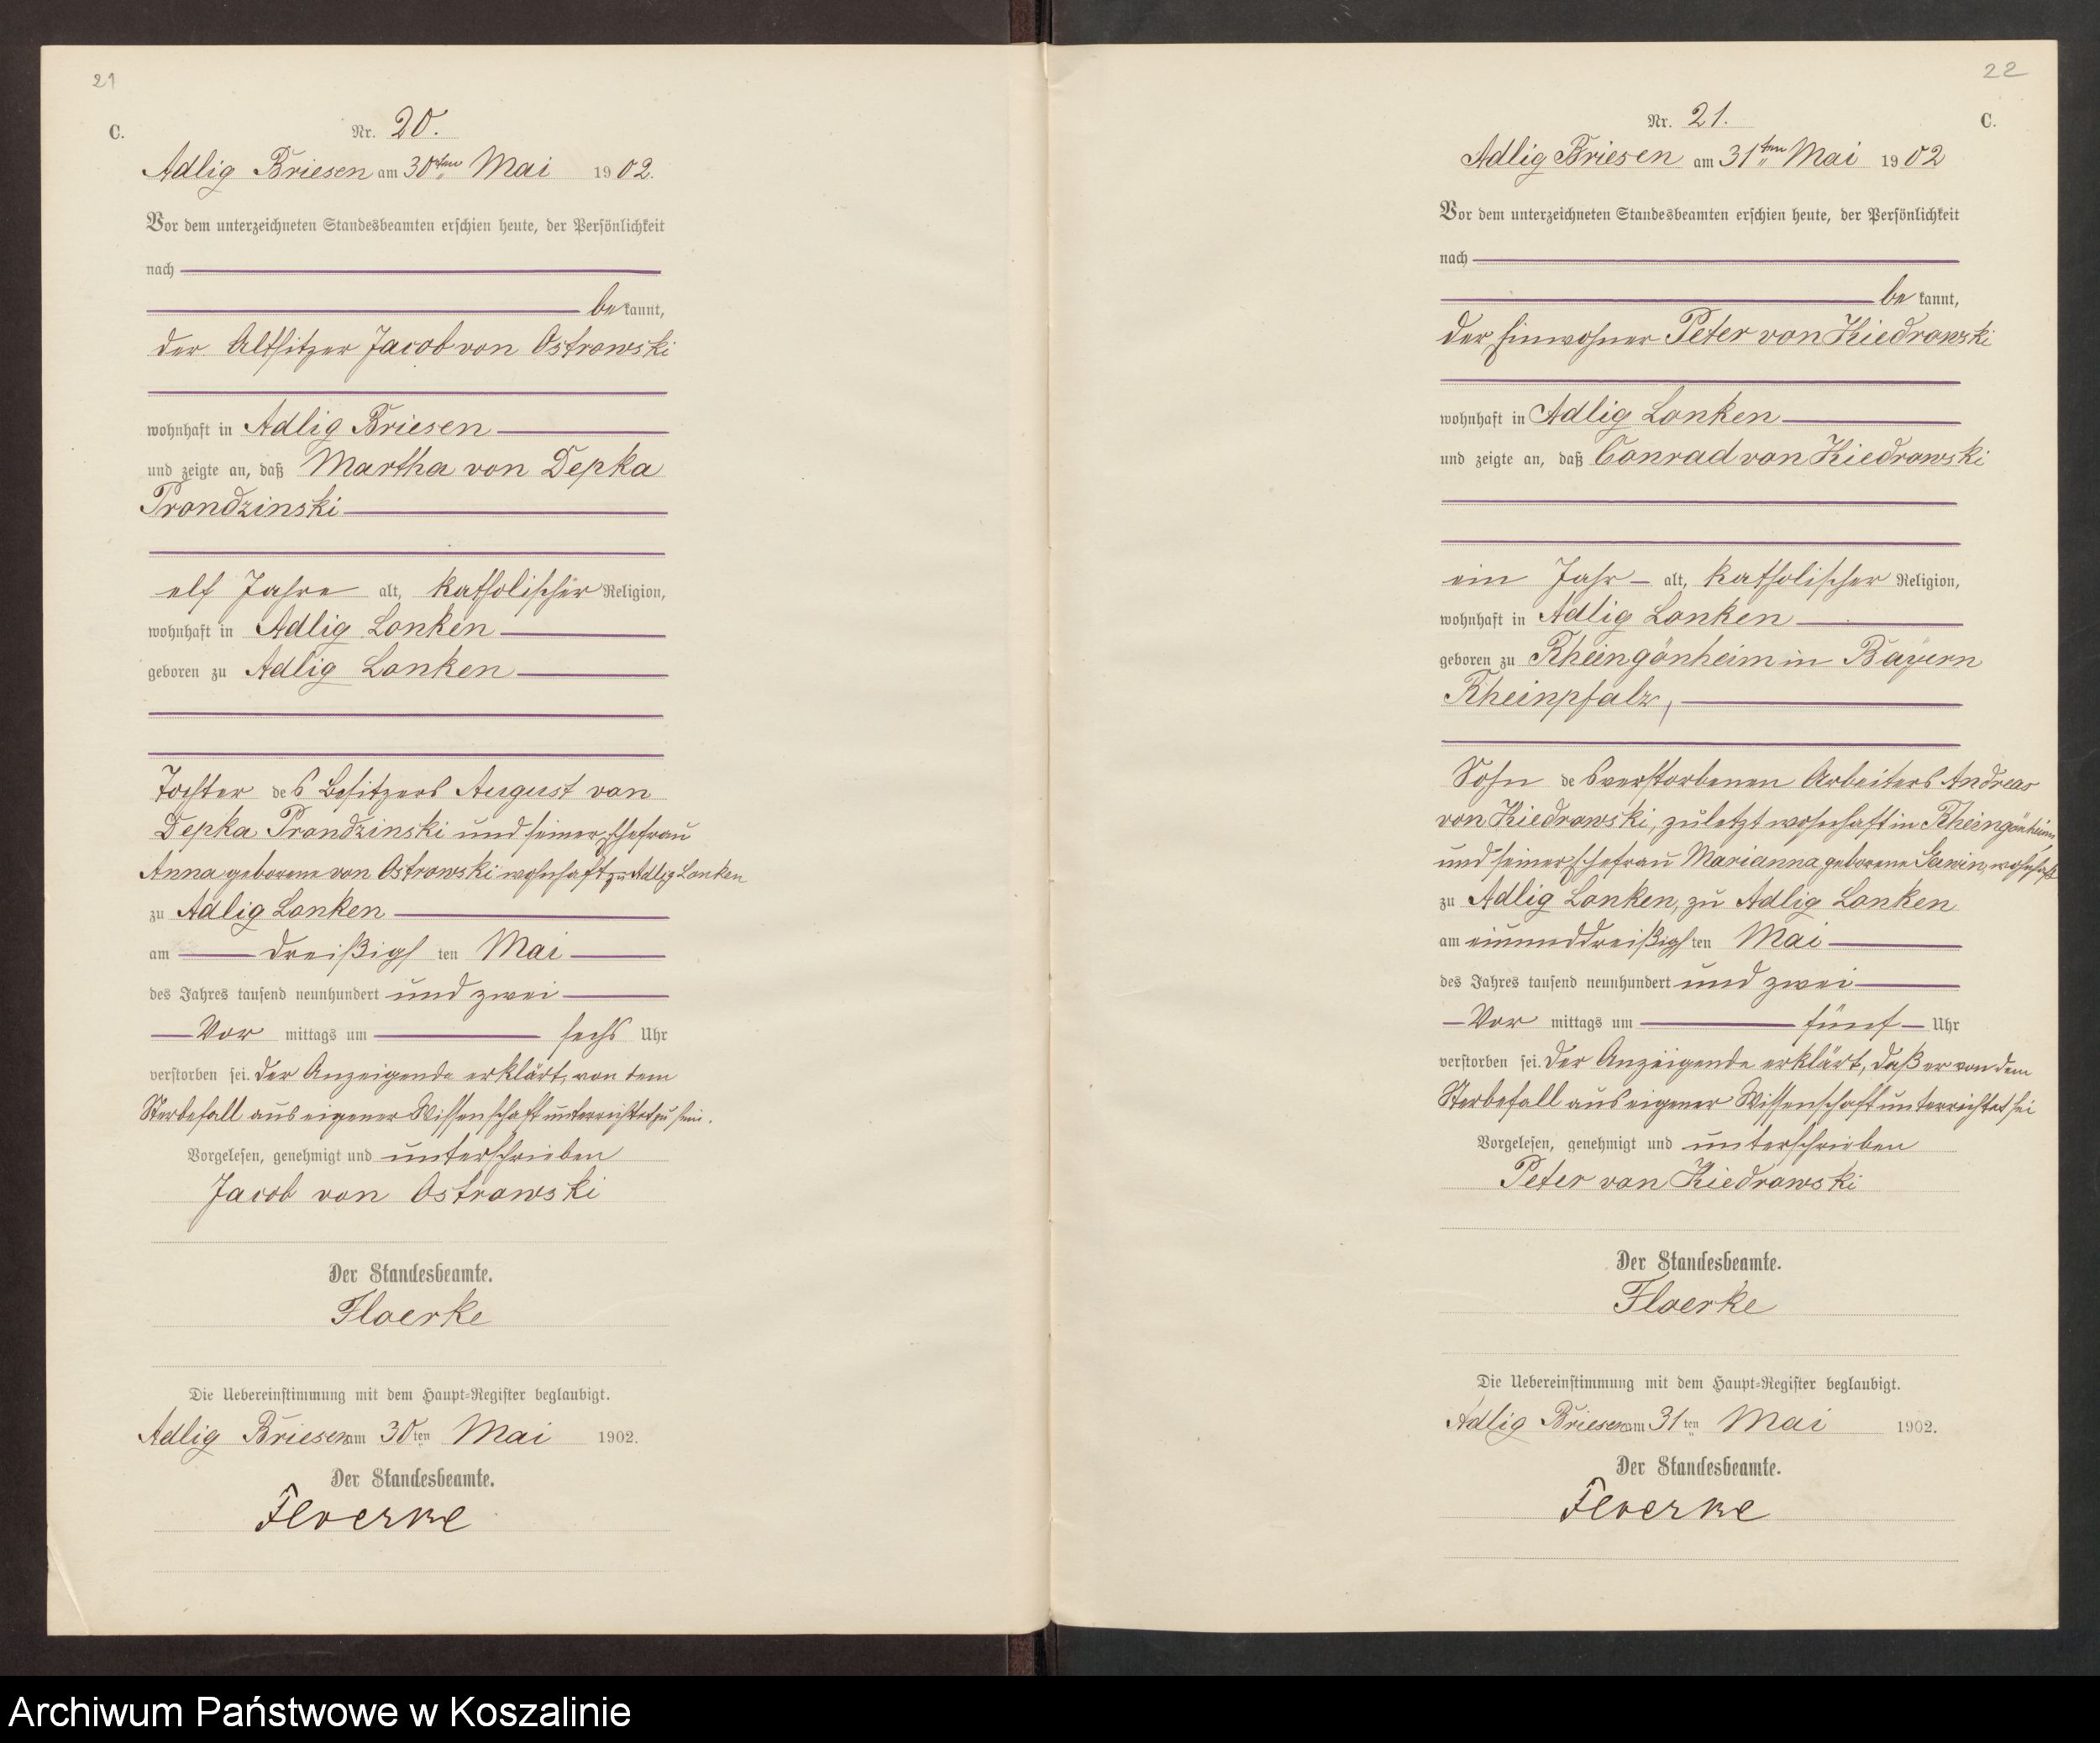 21
C.
Nr. 20.
Adlig Briesen am 30ten Mai 1902.
Vor dem unterzeichneten Standesbeamten erschien heute, der Persönlichkeit
nach
bekannt,
der Altsitzer Jacob von Ostrowski
wohnhaft in Adlig Briesen
und zeigte an, daß Martha von Depka
Prondzinski
elf Jahre alt, katholischer Religion,
wohnhaft in Adlig Lonken
geboren zu Adlig Lonken
Tochter des Besitzers August von
Depka Prondzinski und seiner Ehefrau
Anna geborene von Ostrowski wohnhaft zu Adlig Lonken
zu Adlig Lonken
am dreißigsten Mai
des Jahres tausend neunhundert und zwei
Vor mittags um sechs Uhr
verstorben sei. Der Anzeigende erklärt, von dem
Sterbefall aus eigener Wissenschaft unterrichtet zu sein.
Vorgelesen, genehmigt und unterschrieben
Jacob von Ostrowski
Der Standesbeamte.
Floerke
Die Uebereinstimmung mit dem Haupt-Register beglaubigt.
Adlig Briesen am 30ten Mai 1902.
Der Standesbeamte.
Floerke
22
Nr. 21.
C.
Adlig Briesen am 31ten Mai 1902
Vor dem unterzeichneten Standesbeamten erschien heute, der Persönlichkeit
nach
bekannt,
der Einwohner Peter von Kiedrowski
wohnhaft in Adlig Lonken
und zeigte an, daß Conrad von Kiedrowski
ein Jahr alt, katholischer Religion,
wohnhaft in Adlig Lonken
geboren zu Rheingönheim in Bayern
Rheinpfalz,
Sohn des verstorbenen Arbeiters Andreas
von Kiedrowski, zuletzt wohnhaft in Rheingönheim,
und seiner Ehefrau Marianna geborene Gawin, wohnhaft
zu Adlig Lonken, zu Adlig Lonken
am einunddreißigsten Mai
des Jahres tausend neunhundert und zwei
Vor mittags um fünf Uhr
verstorben sei. Der Anzeigende erklärt, daß er von dem
Sterbefall aus eigener Wissenschaft unterrichtet sei
Vorgelesen, genehmigt und unterschrieben
Peter von Kiedrowski
Der Standesbeamte.
Floerke
Die Uebereinstimmung mit dem Haupt-Register beglaubigt.
Adlig Briesen am 31ten Mai 1902.
Der Standesbeamte.
Floerke
Archiwum Państwowe w Koszalinie